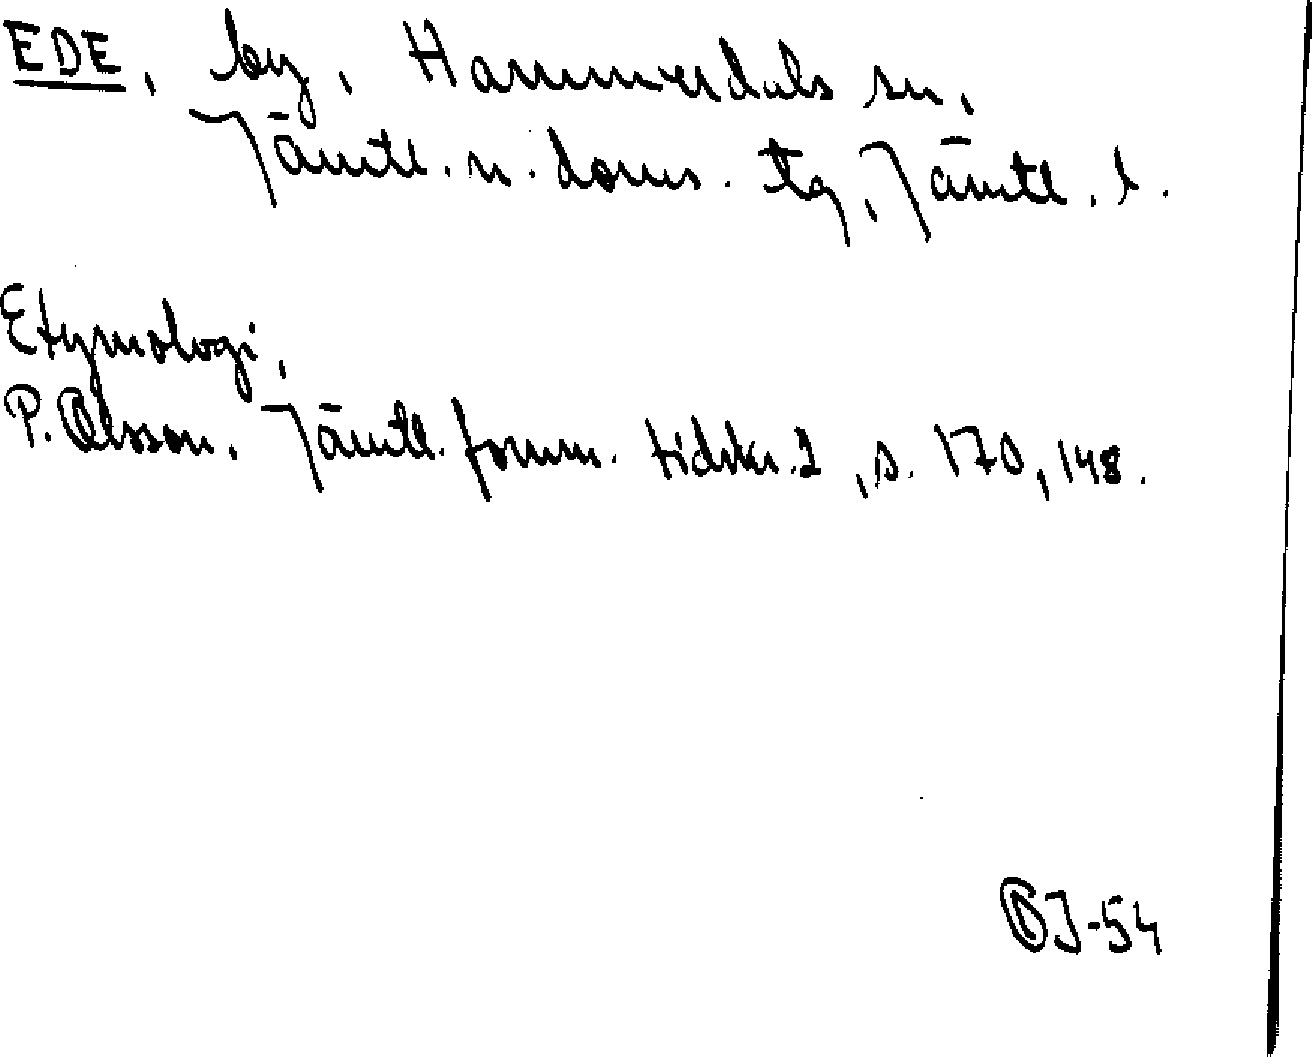 EDE, by, Hammerdals sn,
Jämtl. n. doms. tg, Jämtl. l.
Etymologi,
P. Olsson, Jämtl. fornm. tidskr. 2, s. 170, 148.
OJ-54